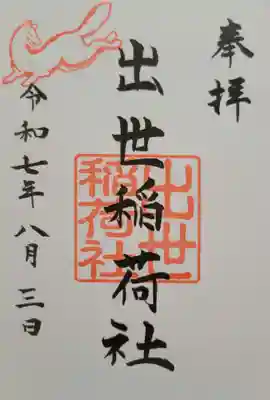 奉拝
出世稲荷社
出世
稲荷社
令和七年八月三日